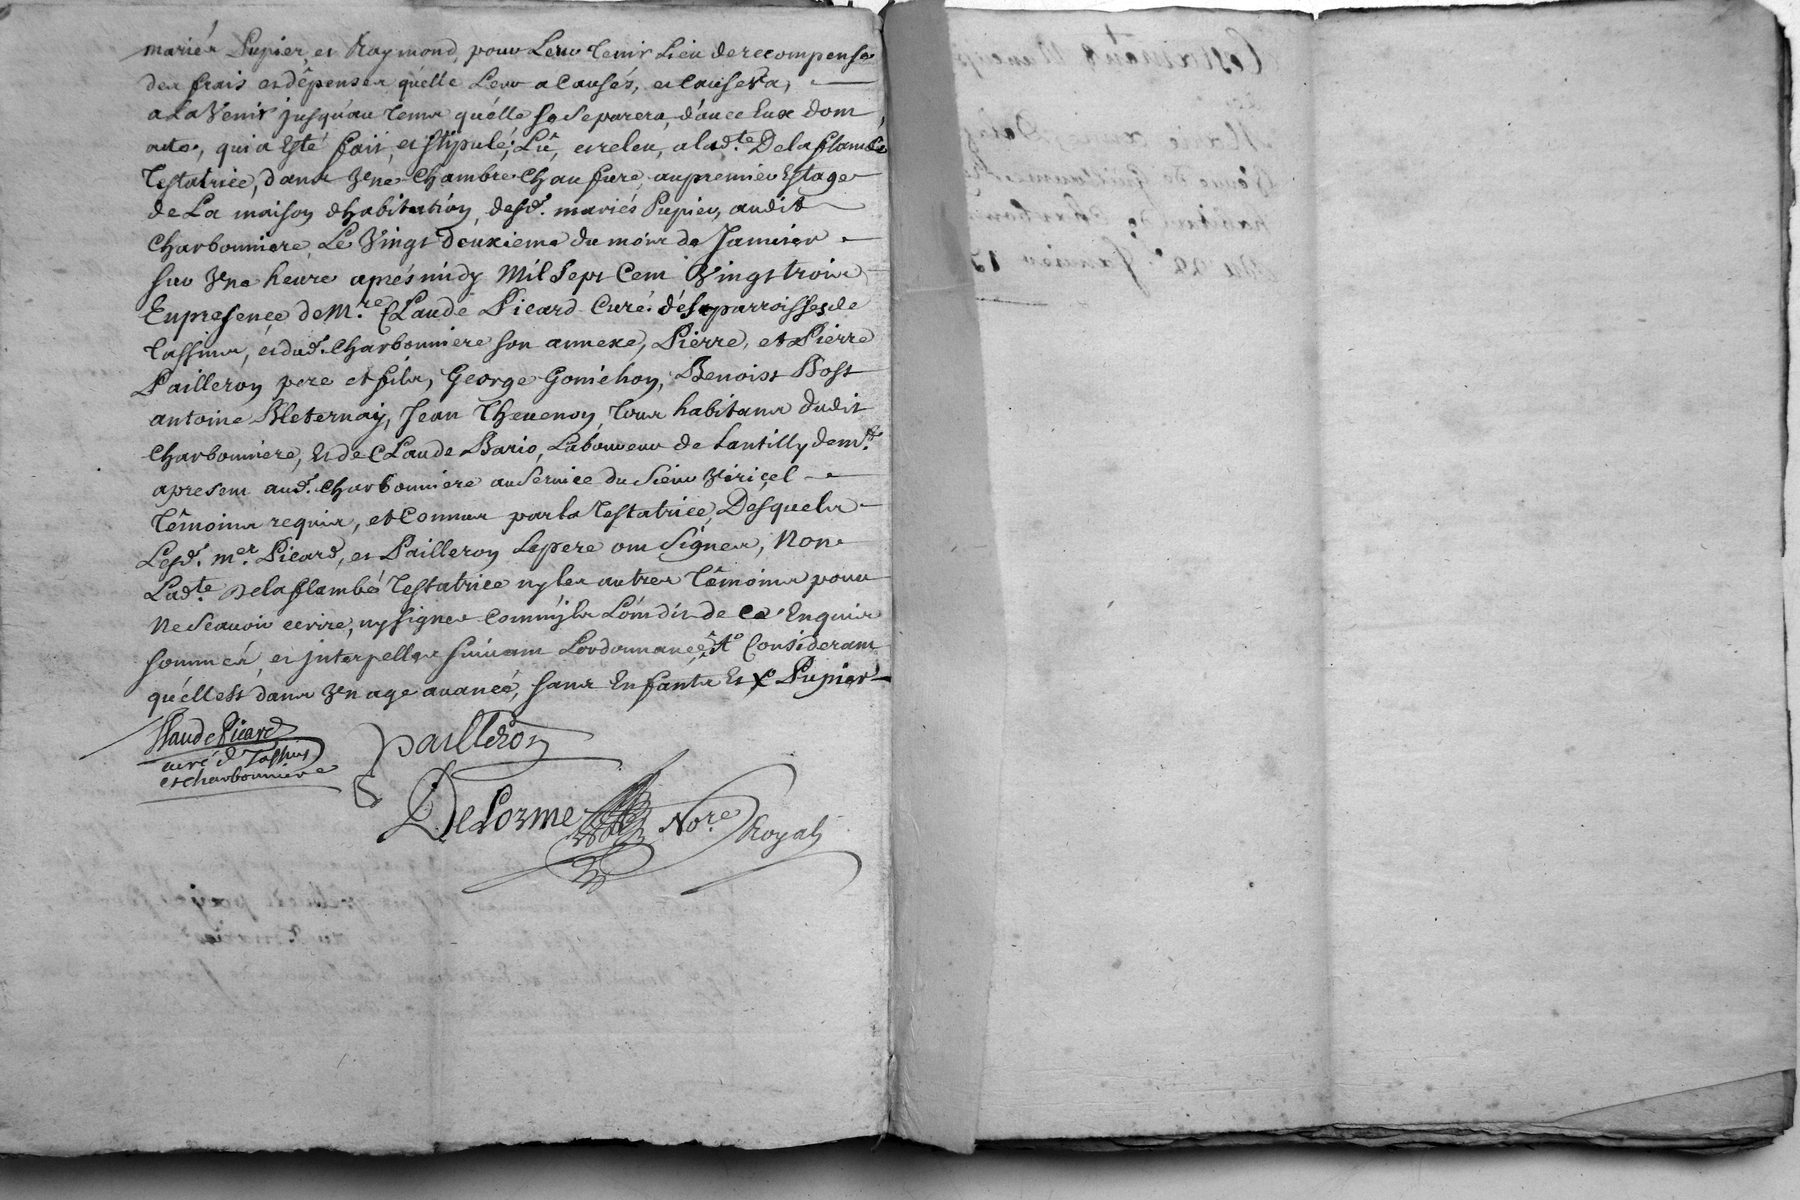 mariés Pupier, et Raymond, pour Leur Tenir Lieu de recompense
des frais et dépenses qu'elle Leur a Causés, et Causera,
a La Venir jusqu'au Tems qu'elle se Separera, d'avec Eux dont
acte, qui a Esté fait, et stipulé, Lû, et releu, a lad.te Delaflambé
Testatrice, dans Vne Chambre Chaufure, au premier Estage
de La maison dhabitation, desd. mariés Pupier, audit
Charbonniere, Le Vingt deuxieme du mois de Januier
sur Vne heure aprés midy Mil Sept Cent Vingt trois
En presence de M.re Claude Picard Curé des parroisses de
Tassins, et dud. Charbonniere son annexe, Pierre, et Pierre
Pailleron pere et fils, George Gonichon, Benoist Bost
antoine Bleternay, Jean Thevenon, Tous habitans dudit
Charbonniere, Et de Claude Bario, Laboureur de Lantilly dem.t
apresent aud. Charbonniere au Service du Sieur Viriçel
Têmoins requis, et Connus par la Testatrice, Desquels
Lesd. m.er Picard, et Pailleron Le pere ont Signés, Non
Lad.te Delaflambé Testatrice ny les autres Têmoins pour
Ne Scauoir ecrire, ny signer Comm'ils L'ont dit de Ce Enquis
sommés, et jnterpellés suivant Lordonnance, Consideram
qu'elle est dans Vn age auancé, sans Enfants Et Pupier
Claude Picard
curé d Tassins
et charbonniere
pailleron
DeLorme No.re Royal